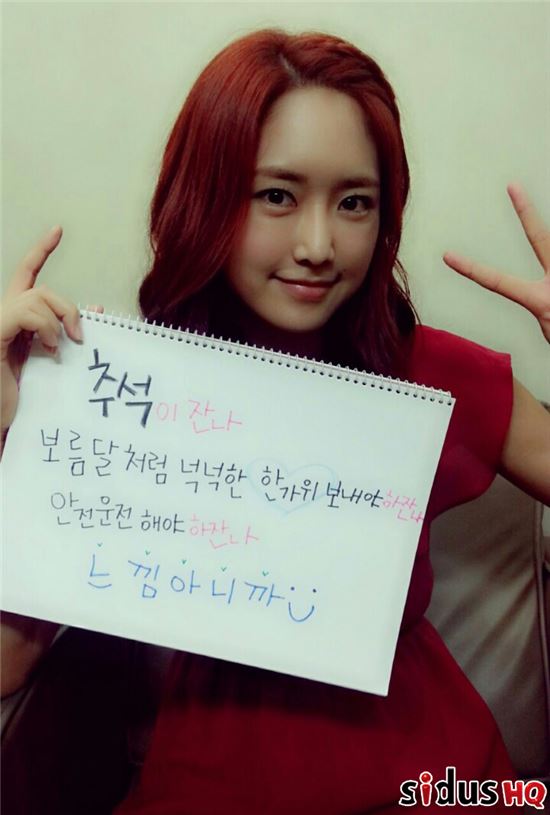 추석이 잔나
보름달처럼 넉넉한 한가위 보내야하잔나
안전운전 해야 하잔나
느낌아니까
sidus HQ